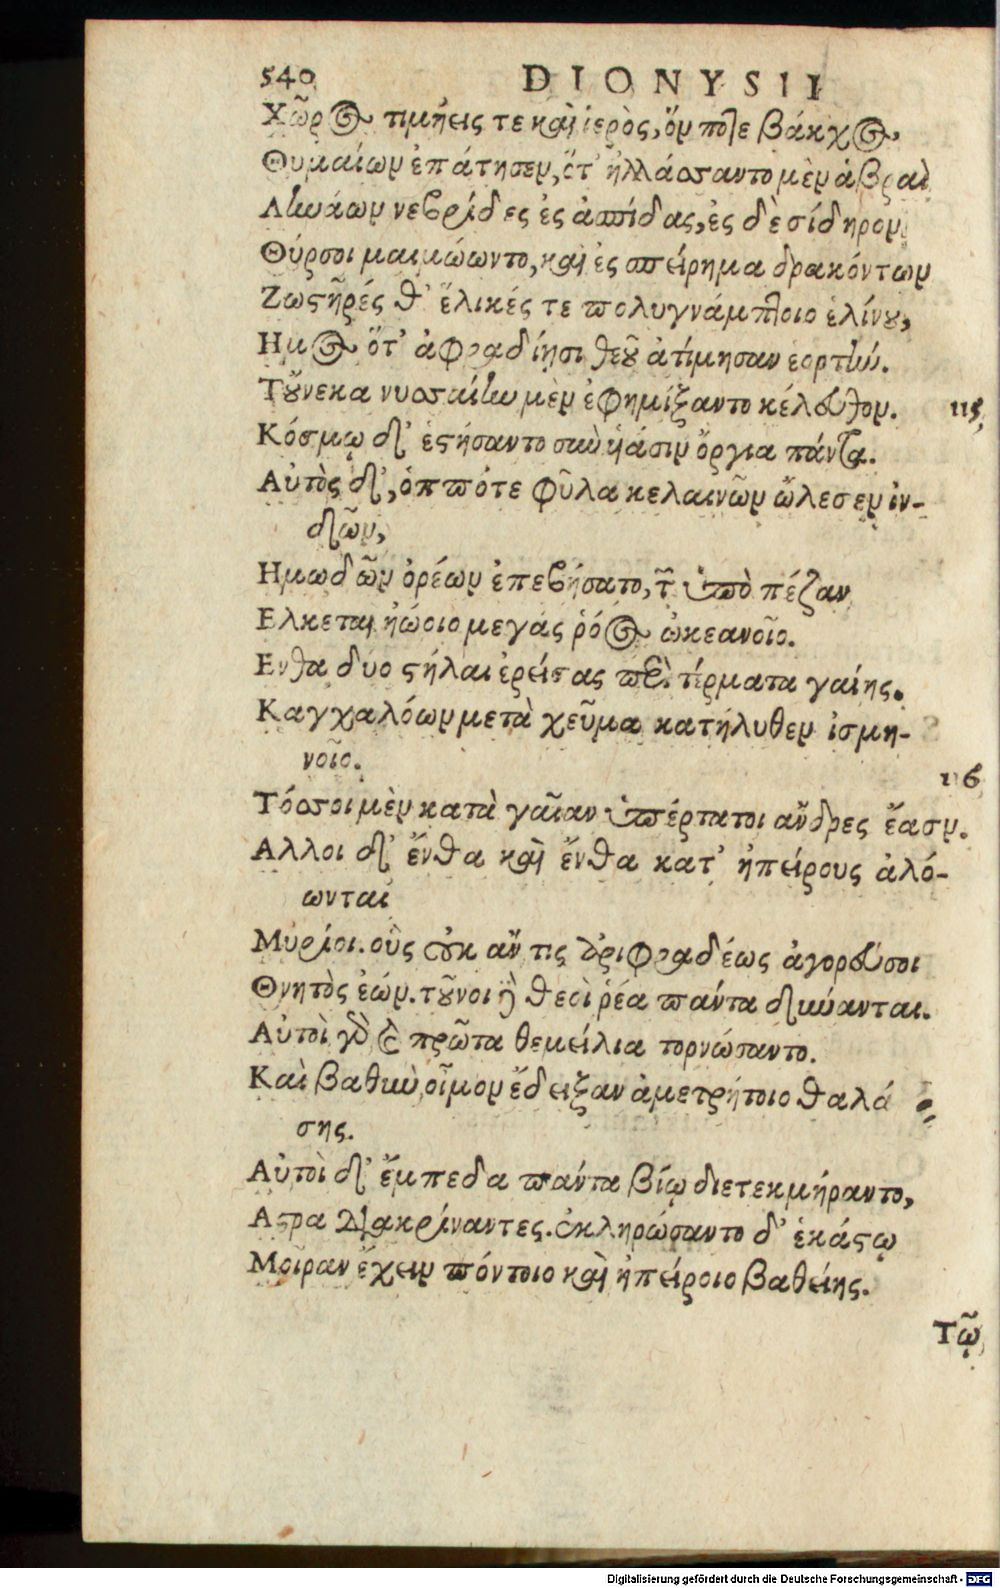 540 DIONYSII
Χῶρος τιμήεις τε καὶ ἱερὸς, ὅν ποτε βάκχος,
Θυμαίων ἐπάτησεν, ὅτ' ἠλλάσσαντο μὲν ἁβραὶ
Ληνάων νεβρίδες ἐς ἀσπίδας, ἐς δὲ σίδηρον
Θύρσοι μαιμώωντο, καὶ ἐς σπείρημα δρακόντων
Ζωστῆρές θ' ἕλικές τε πολυγνάμπτοιο ἑλίνου,
Ημος ὅτ' ἀφραδίησι θεοῦ ἀτίμησαν ἑορτήν.
Τοὔνεκα νυσσαίην μὲν ἐφημίξαντο κέλευθον. 115
Κόσμῳ δ' ἐστήσαντο σὺν ὑιάσιν ὄργια πάντα.
Αὐτὸς δ', ὁππότε φῦλα κελαινῶν ὤλεσεν ἰν-
δῶν,
Ημωδῶν ὀρέων ἐπεβήσατο, τῶν ὑπὸ πέζαν
Ελκεται ἠώοιο μεγάς ῥόος ὠκεανοῖο.
Ενθα δυο στήλαι ἐρείσας περὶ τέρματα γαίης.
Καγχαλόων μετὰ χεῦμα κατήλυθεν ἰσμη-
νοῖο.
116
Τόσσοι μὲν κατὰ γαῖαν ὑπέρτατοι αὖδρες ἔασιν.
Αλλοι δ' ἔνθα καὶ ἔνθα κατ' ἠπείρους ἀλό-
ωνται
Μυρίοι. οὓς οὐκ ἄν τις ἀριφραδέως ἀγορεύσοι
Θνητὸς ἐών. τοῦνοι γὰρ θεοὶ ῥέα πάντα δύνανται.
Αὐτοὶ γὰρ καὶ πρῶτα θεμείλια τορνώσαντο.
Καὶ βαθὺν οἶμον ἔδειξαν ἀμετρήτοιο θαλά
σης.
Αὐτοὶ δ' ἔμπεδα πάντα βίῳ διετεκμήραντο,
Αστρα διακρίναντες. ἐκληρώσαντο δ' ἑκάστῳ
Μοῖραν ἔχειν πόντοιο καὶ ἠπείροιο βαθείης.
Τῷ
Digitalisierung gefördert durch die Deutsche Forschungsgemeinschaft - DFG